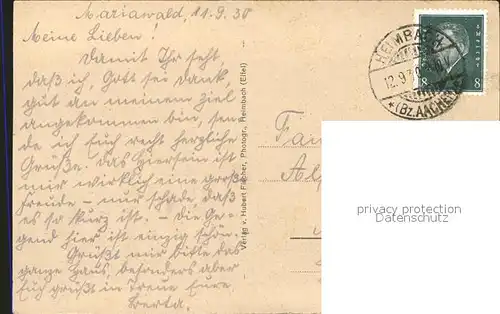 Mariawald, 11.9.30
Meine Lieben!
Damit Ihr seht,
daß ich, Gott sei Dank,
gut an meinem Ziel
angekommen bin, sen-
de ich Euch recht herzliche
Grüße. Das Hiersein ist
mir wirklich eine große
Freude – nur schade, daß
es so kurz ist. – Die Ge-
gend hier ist einzig schön.
Grüßt mir bitte das
ganze Haus, besonders aber
Euch grüßt in Treue Eure
Berta.
Verlag v. Hubert Fischer, Photogr., Heimbach (Eifel)
HEIMBACH
12.9.30
*(Bz. AACHEN)
8 8
Fam
privacy protection
Datenschutz